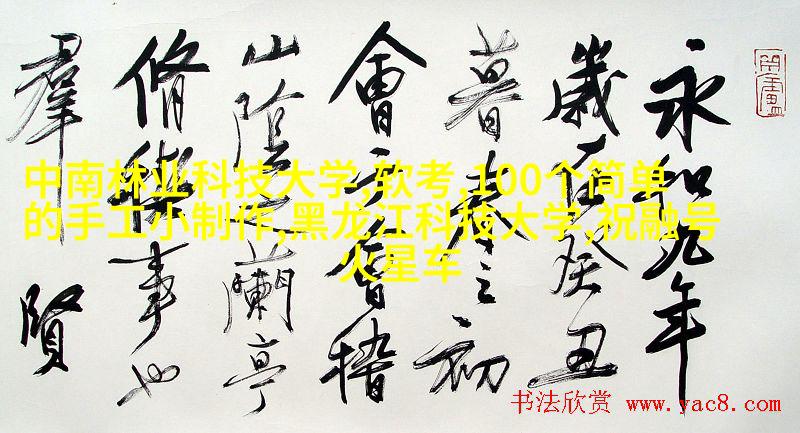 永和九年
歲在癸丑
暮春之初
會于會稽
山陰之蘭亭
脩稧事也
羣賢
中南林业科技大学,软考,100个简单
的手工小制作,黑龙江科技大学,祝融号
火星车
书法欣赏 www.yac8.com